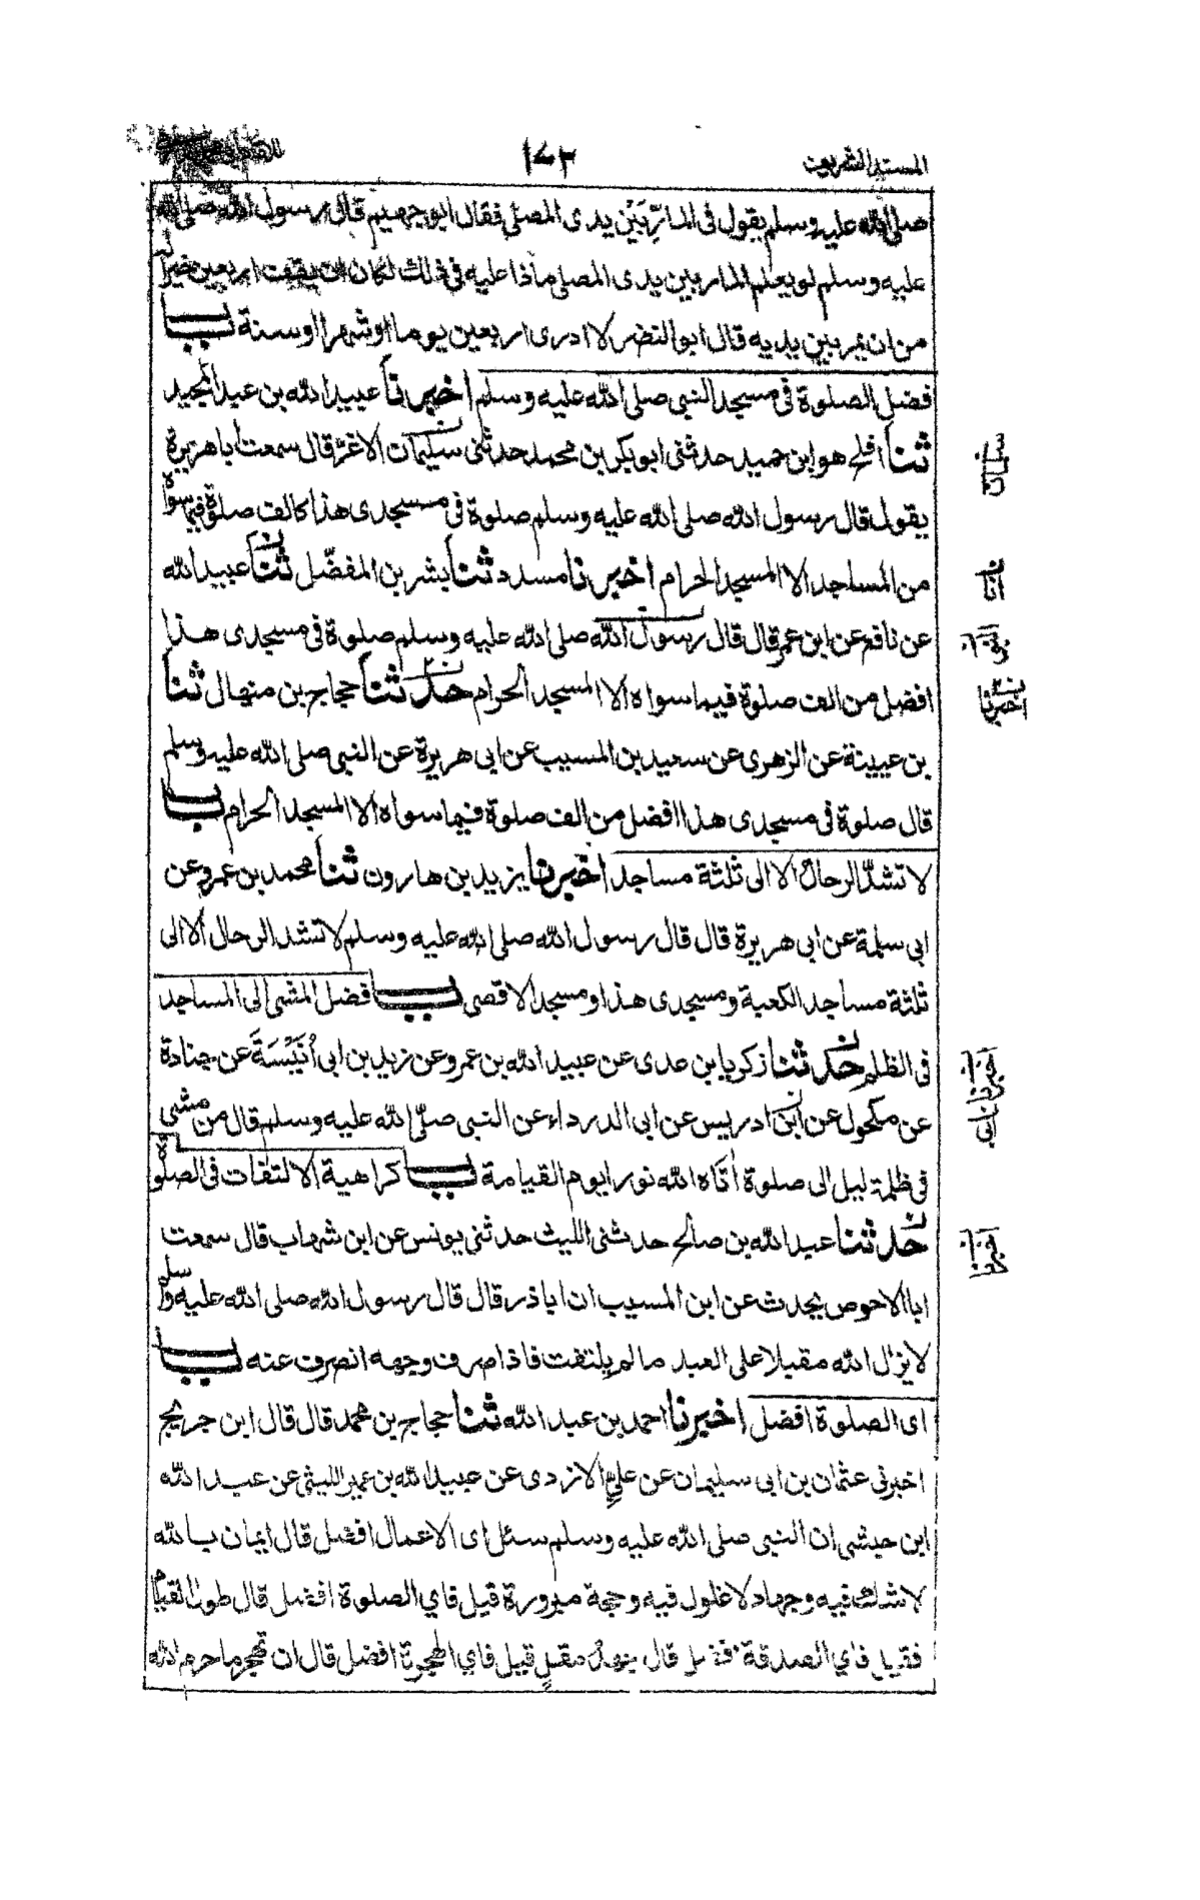 المسند الشريف
١٧٣
صلى الله عليه وسلم يقول فى المارِّ بَيْن يدى المصلى فقال ابو جهيم قال رسول الله صلى الله
عليه وسلم لو يعلم المار بين يدى المصلى ماذا عليه فى ذلك لكان ان يقف اربعين خيرا له
من ان يمر بين يديه قال ابو النضر لا ادرى اربعين يوما او شهرا او سنة باب
فضل الصلوة فى مسجد النبى صلى الله عليه وسلم اخبرنا عبيد الله بن عبد المجيد
ثنا افلح هو ابن حميد حدثنى ابو بكر بن محمد حدثنى سليمان الاغر قال سمعت ابا هريرة
يقول قال رسول الله صلى الله عليه وسلم صلوة فى مسجدى هذا كالف صلوة فيما سواه
من المساجد الا المسجد الحرام اخبرنا مسدد ثنا بشر بن المفضّل ثنا عبيد الله
عن نافع عن ابن عمر قال قال رسول الله صلى الله عليه وسلم صلوة فى مسجدى هذا
افضل من الف صلوة فيما سواه الا المسجد الحرام حدثنا حجاج بن منهال ثنا
بن عيينة عن الزهرى عن سعيد بن المسيب عن ابى هريرة عن النبى صلى الله عليه وسلم
قال صلوة فى مسجدى هذا افضل من الف صلوة فيما سواه الا المسجد الحرام باب
لا تشدّ الرحال الا الى ثلثة مساجد اخبرنا يزيد بن هارون ثنا محمد بن عمرو عن
ابى سلمة عن ابى هريرة قال قال رسول الله صلى الله عليه وسلم لا تشد الرحال الا الى
ثلثة مساجد الكعبة ومسجدى هذا ومسجد الاقصى باب فضل المشى الى المساجد
فى الظلم حدثنا زكريا بن عدى عن عبيد الله بن عمرو عن زيد بن ابى اُنَيْسَةَ عن جنادة
عن مكحول عن ابن ادريس عن ابى الدرداء عن النبى صلّى الله عليه وسلم قال من مشى
فى ظلمة ليل الى صلوة اتاه الله نورا يوم القيامة باب كراهية الالتفات فى الصلوة
حدثنا عبد الله بن صالح حدثنى الليث حدثنى يونس عن ابن شهاب قال سمعت
ابا الاحوص يحدث عن ابن المسيب ان ابا ذر قال قال رسول الله صلى الله عليه وسلم
لا يزال الله مقبلا على العبد ما لم يلتفت فاذا صرف وجهه انصرف عنه باب
اى الصلوة افضل اخبرنا احمد بن عبد الله ثنا حجاج بن محمد قال قال ابن جريج
اخبرنى عثمان بن ابى سليمان عن علىٍّ الازدى عن عبيد الله بن عمير الليثى عن عبد الله
ابن حبشى ان النبى صلى الله عليه وسلم سئل اى الاعمال افضل قال ايمان بالله
لا شك فيه وجهاد لا غلول فيه وحجة مبرورة قيل فاي الصلوة افضل قال طول القيام
فقيل فاي الصدقة افضل قال جهدُ مقلٍ قيل فاي الهجرة افضل قال ان تهجر ما حرم الله
سلمان
انا
اخبرنا
اخبرنا
اخبرنا